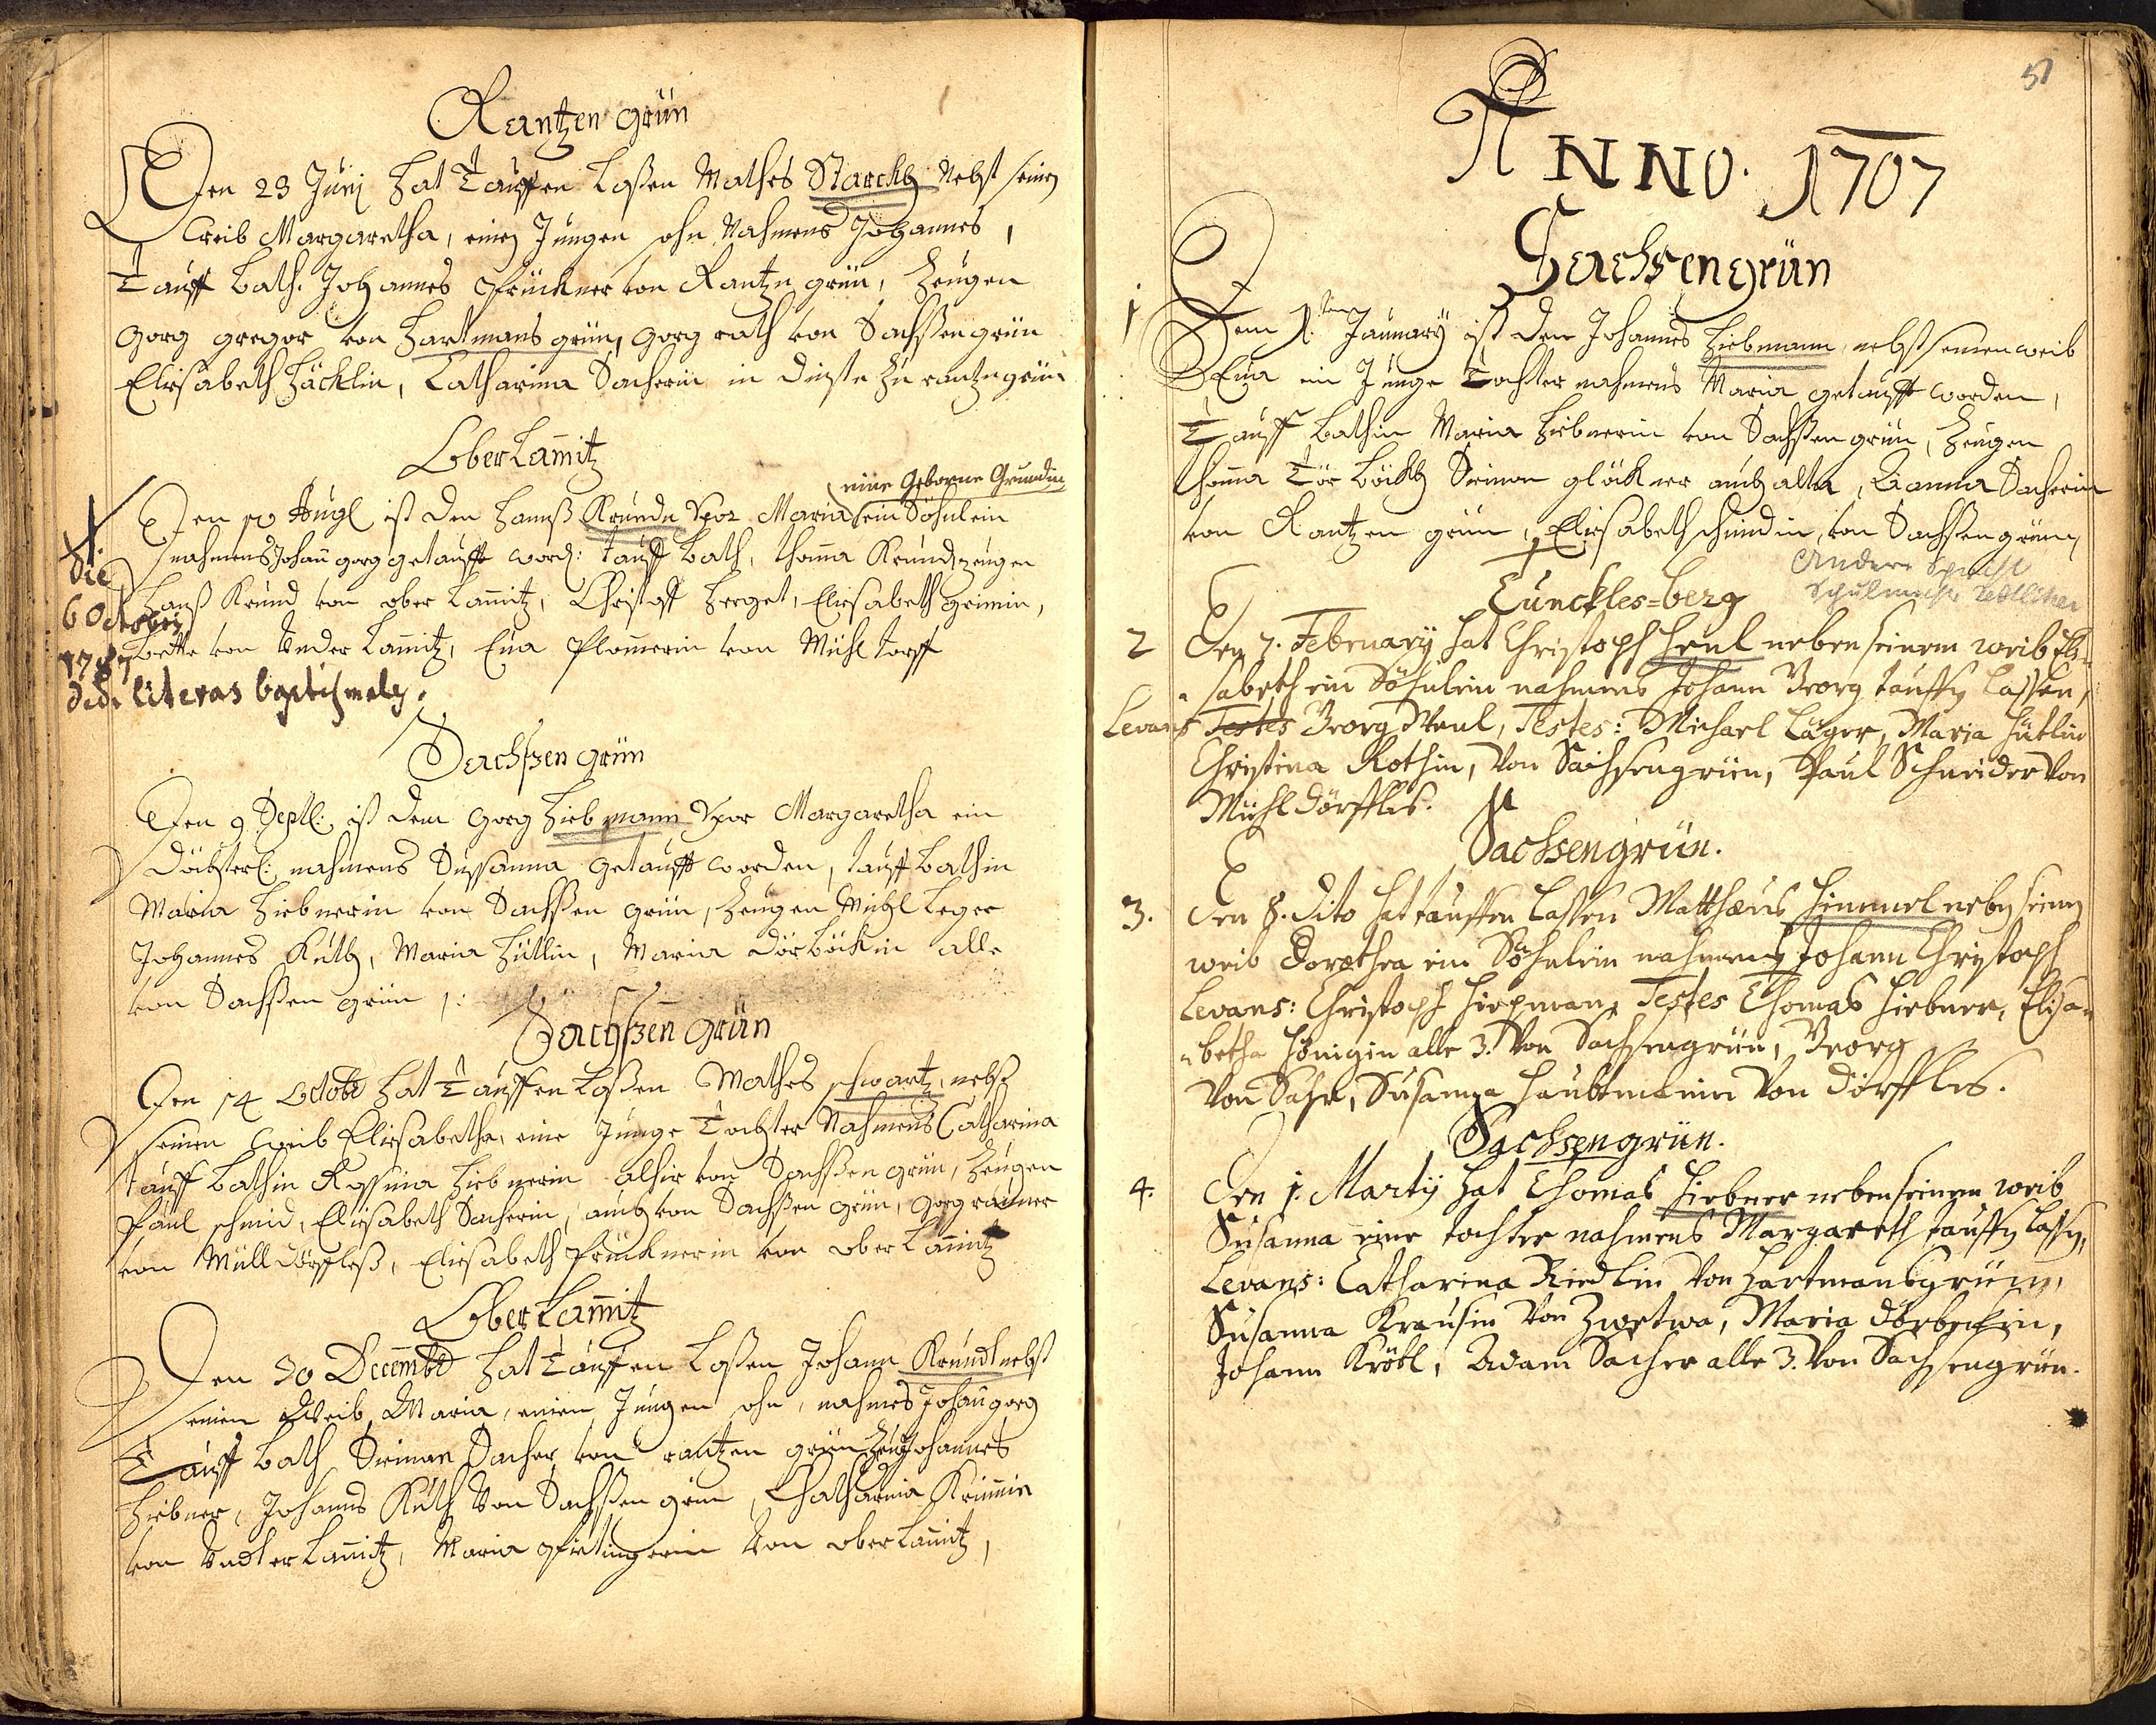 Rantzen grün
Den 23 Junj hat Tauffen Laßen Mathes Starckh Nebst seinen
weib Margaretha, einen Jungen sohn Nahmens Johannes,
Tauff bath. Johannes Prückner von Rantzn grün, Zeugen
gorg gregor von Hartmans grün, gorg rath von Sachssen grün
Eliesabeth Häcklin, Catharina Sacherin in dinste Zu rantzngrün
Ober Lam̅itz
(eine Geborne Grundin
Den 10 Augl ist den Hannß Krundn Vxor Maria ein Söhnlein
nahmens Johan̅ gorg getaufft word: tauff bath, thom̅a Krundt, zeugen
Hanß Krund von ober Lam̅itz, Christoff Herget, Eliesabeth grimin,
beite von Under Lam̅itz, Eva Plom̅erin von Mühl dorff
X.
die
6 Octobris
1787
dedi literas baptismales.
Sachßen grün
Den 9 Septl: ist dem gorg Hiebmann Vxor Margaretha ein
döchterl: nahmens Sussanna getaufft worden, tauff bathin
Maria Hiebnerin von Sachßen grün, Zeugen Michl Leger
Johannes Ruth, Maria Hütlin, Maria dörböckin alle
von Sachßen grün
Sachßen grün
Den 14 Octobr hat Tauffen Laßen Mathes schwartz, nebst
seinen weib Eliesabetha, eine Junge Tochter Nahmens Catharina
tauff bathin Rossina Hiebnerin alhir von Sachßen grün, Zeugen
Paul schmid, Eliesabeth Sacherin, auch von Sachßen grün, gorg rauner
von Mülldörffleß, Eliesabeth Prücknerin von ober Lam̅itz
Ober Lam̅itz
Den 30 Decembr hat Tauffen Laßen Johann Krundt nebst
seinen Weib Maria, einen Jungen sohn, nahmes Johan̅ gorg
Tauff bath Simon Sacher von rantzen grün Zeug Johannes
Hiebner, Johannes Ruth Von Sachßen grün, Chatharina Krim̅in
von Undter Lam̅itz, Maria Pfirtingerin Von ober Lam̅itz,
51
ANNO. 1707
Sachsengrün
1
Denn 1.ten January ist den Johannes Hiebmann, nebst seinen weib
Eva ein Junge Tochter nahmens Maria getaufft worden,
Tauff bathin Maria Hiebnerin von Sachßen grün, Zeugen
Thom̅a Dör böckh Simon glöckner auch alda, Anna Sacherin
von Rantzen grün, Eliesabeth schmidin, von Sachßen grün,
Andere Schrift
Schulmeister
Tunckles=berg
2
Den 7. February hat Christoph Heul neben seinem weib Eli=
sabeth ein Söhnlein nahmens Johann Georg tauffen lassen,
Levans Testes Georg Heul, Testes: Michael Läger, Maria Hütlin
Christina Rothin, Von Sachsengrün, Paul Schneider Von
Mühldörffles.
Sachsengrün.
3.
Den 8. dito hat tauffen lassen Matthæus Himmel neben seinen
weib Dorothea ein Söhnlein nahmens Johann Christoph
Levans: Christoph Hiepman, Testes Thomas Hiebner, Elisa=
=betha Hönigin alle 3. Von Sachsengrün, Georg
Von Sahr, Susanna Haubtmannin Von dörffles.
Sachsengrün.
4.
Den 1. Martij hat Thomas Hiebner neben seinem weib
Susanna eine tochter nahmens Margareth tauffen lassen,
Levans: Catharina Riedlin Von Hartmansgrün,
Susanna Krausin Von Zwetwa, Maria dörbeckin,
Johann Kröbl, Adam Sacher alle 3. Von Sachsengrün.